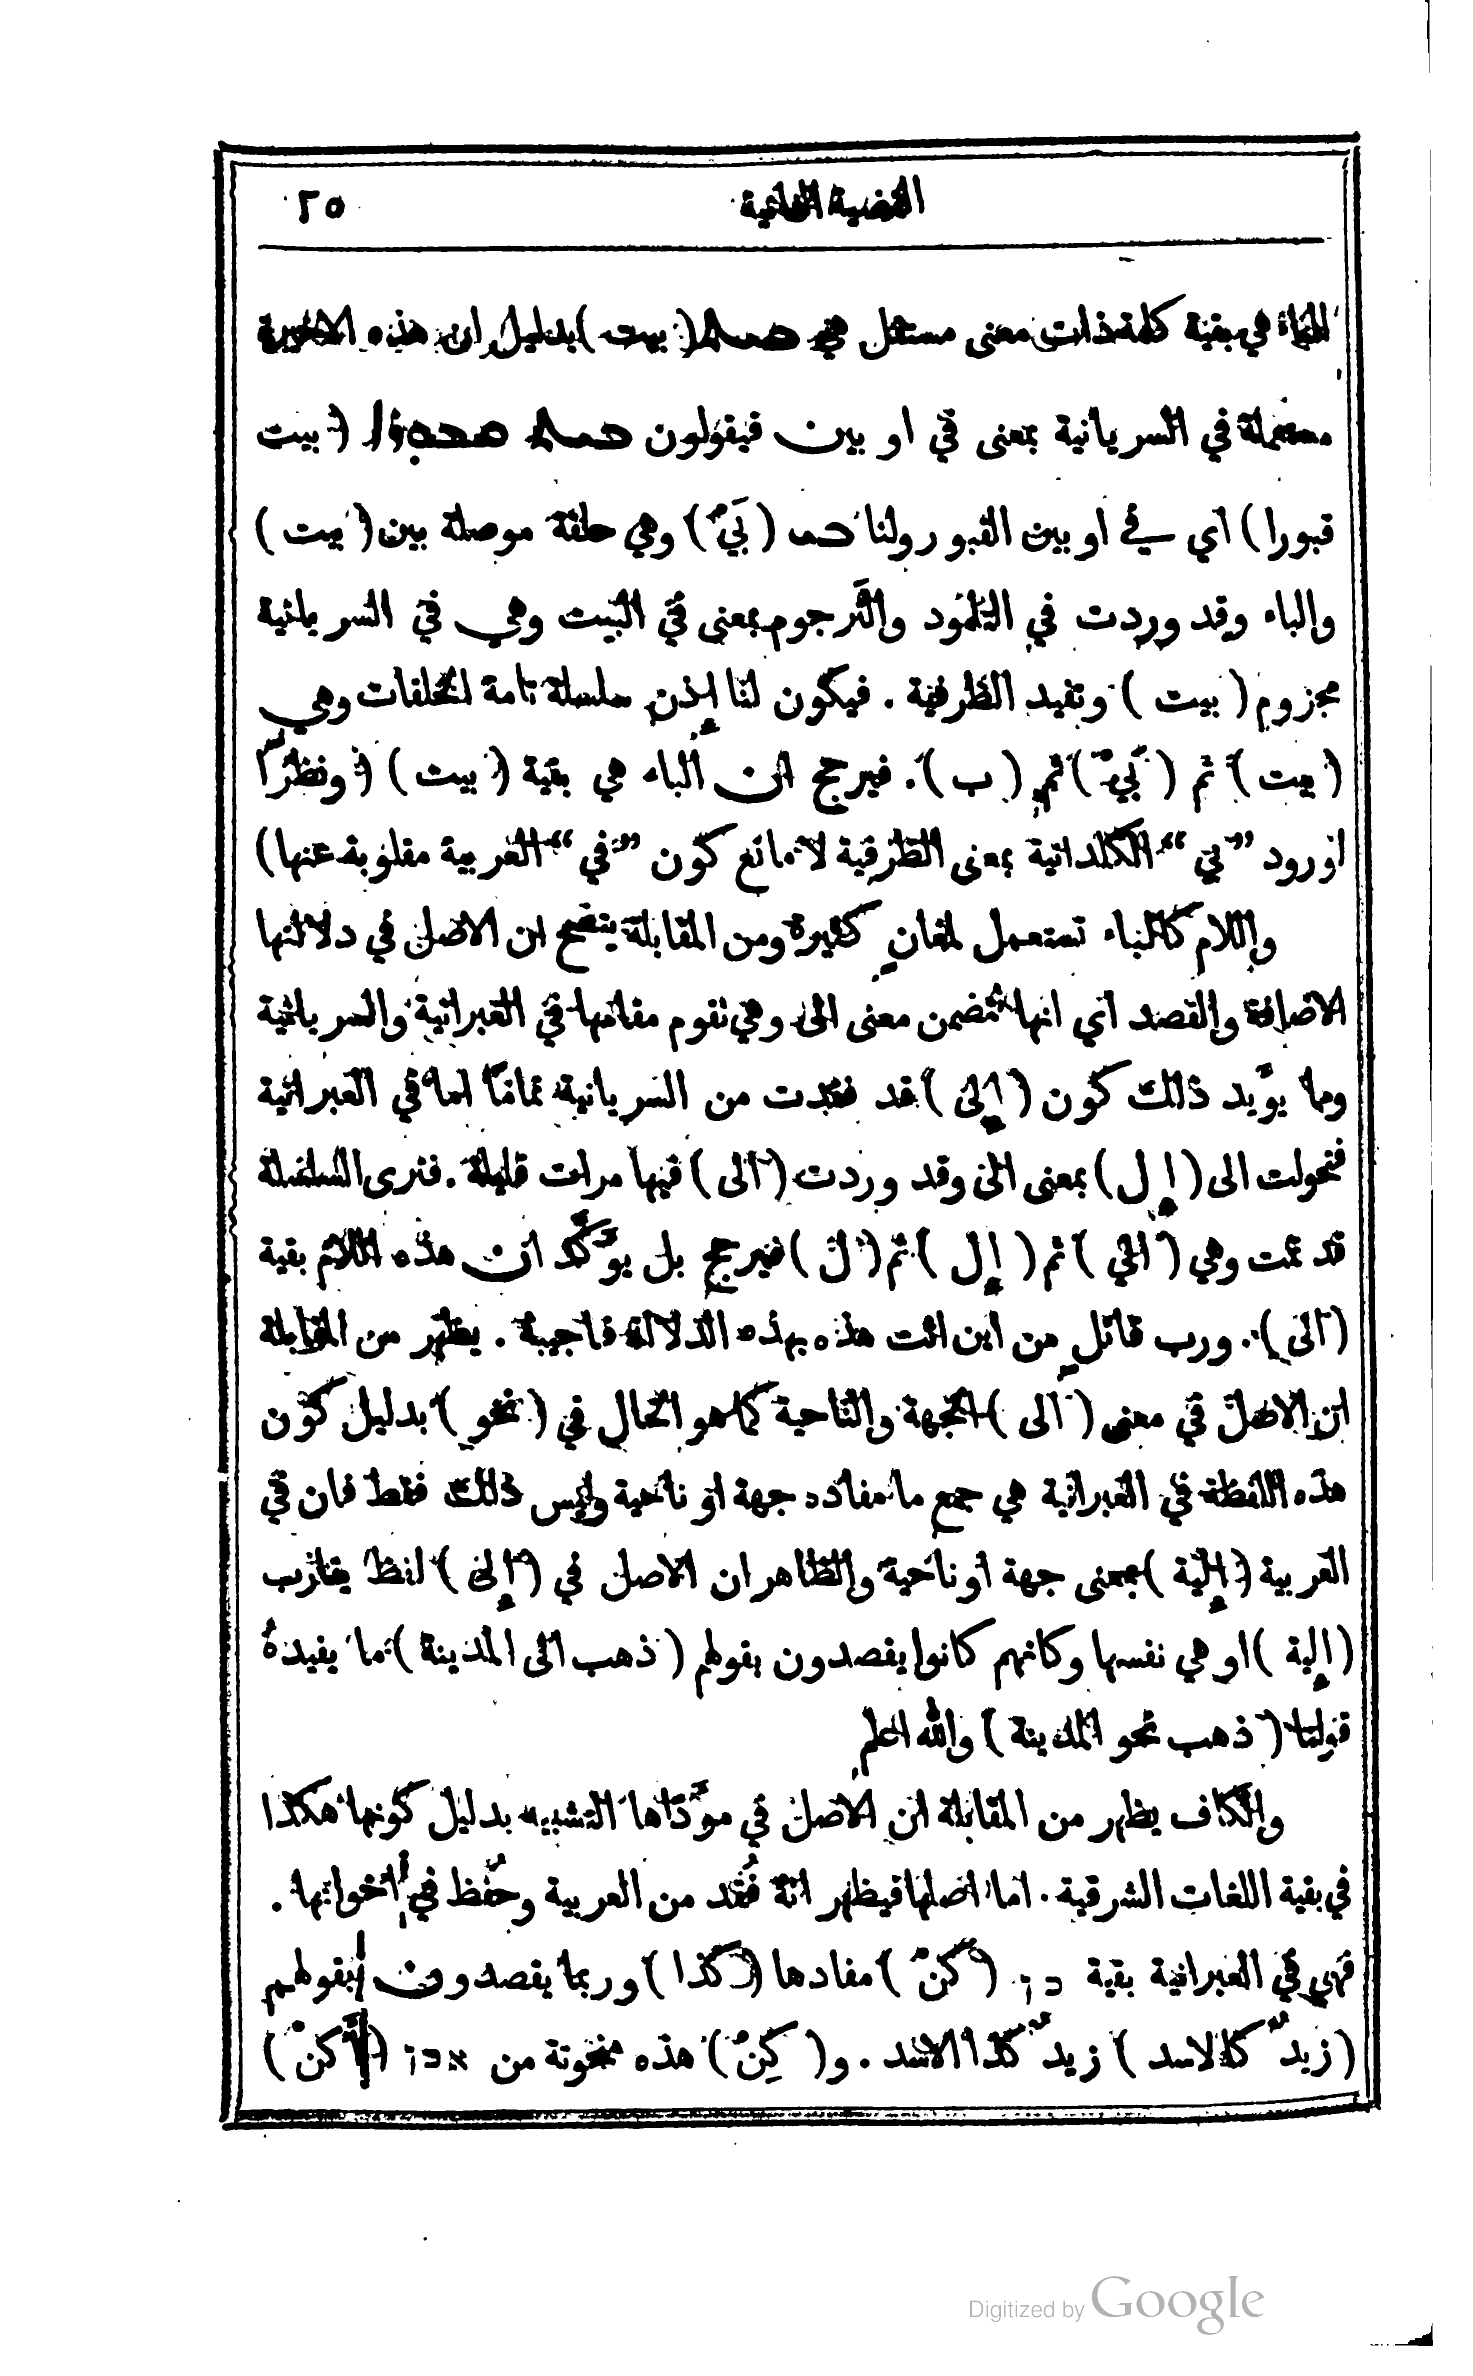 القضية الثانية ٢٥
هي بقية كلمة ذات معنى مستقل هي ܒܝܬ (بيت) بدليل ان هذه الاخيرة
مستعملة في السريانية بمعنى في او بين فيقولون ܒܝܬ ܩܒܘܪ̈ܐ (بيت
قبورا) اي في او بين القبور ولنا ܒܝ (بَيْ) وهي حلقة موصلة بين (بيت)
والباء وقد وردت في التلمود والترجوم بمعنى في البيت وهي في السريانية
مجزوم (بيت) وتفيد الظرفية . فيكون لنا إذن سلسلة تامة الحلقات وهي
(بيت) ثم (بَيْ) ثم (ب). فيرجح ان الباء هي بقية (بيت) (ونظرًا
لورود ”بي“ الكلدانية بمعنى الظرفية لا مانع كون ”في“ العربية مقلوبة عنها)
واللام كالباء تستعمل لمعانٍ كثيرة ومن المقابلة يتضح ان الاصل في دلالتها
الاضافة والقصد اي انها تتضمن معنى الى وهي تقوم مقامها في العبرانية والسريانية
وما يؤيد ذلك كون (إلى) قد فقدت من السريانية تمامًا اما في العبرانية
فتحولت الى (إل) بمعنى الى وقد وردت (الى) فيها مرات قليلة . فترى السلسلة
قد تمت وهي (الي) ثم (إل) ثم (ل) فيرجح بل يؤكَّد ان هذه اللام بقية
(الى). ورب قائلٍ من اين اتت هذه بهذه الدلالة فاجيبة . يظهر من المقابلة
ان الاصل في معنى (الى) الجهة والناحية كما هو الحال في (نحو) بدليل كون
هذه اللفظة في العبرانية هي جمع ما مفاده جهة او ناحية وليس ذلك فقط فان في
العربية (إلية) بمعنى جهة او ناحية والظاهر ان الاصل في (إلى) لفظ يقارب
(إلية) او هي نفسها وكانهم كانوا يقصدون بقولهم (ذهب الى المدينة) ما يفيدهُ
قولنا (ذهب نحو المدينة) والله اعلم
والكاف يظهر من المقابلة ان الاصل في مؤَدَّاها التشبيه بدليل كونها هكذا
في بقية اللغات الشرقية . اما اصلها فيظهر انهُ فُقد من العربية وحُفظ في أخواتها .
فهي في العبرانية بقية כן (كن) مفادها (كذا) وربما يقصدون بقولهم
(زيدٌ كالاسد) زيدٌ كذا الاسد . و (كِنْ) هذه منحوتة من אכן (أَكن)
Digitized by Google